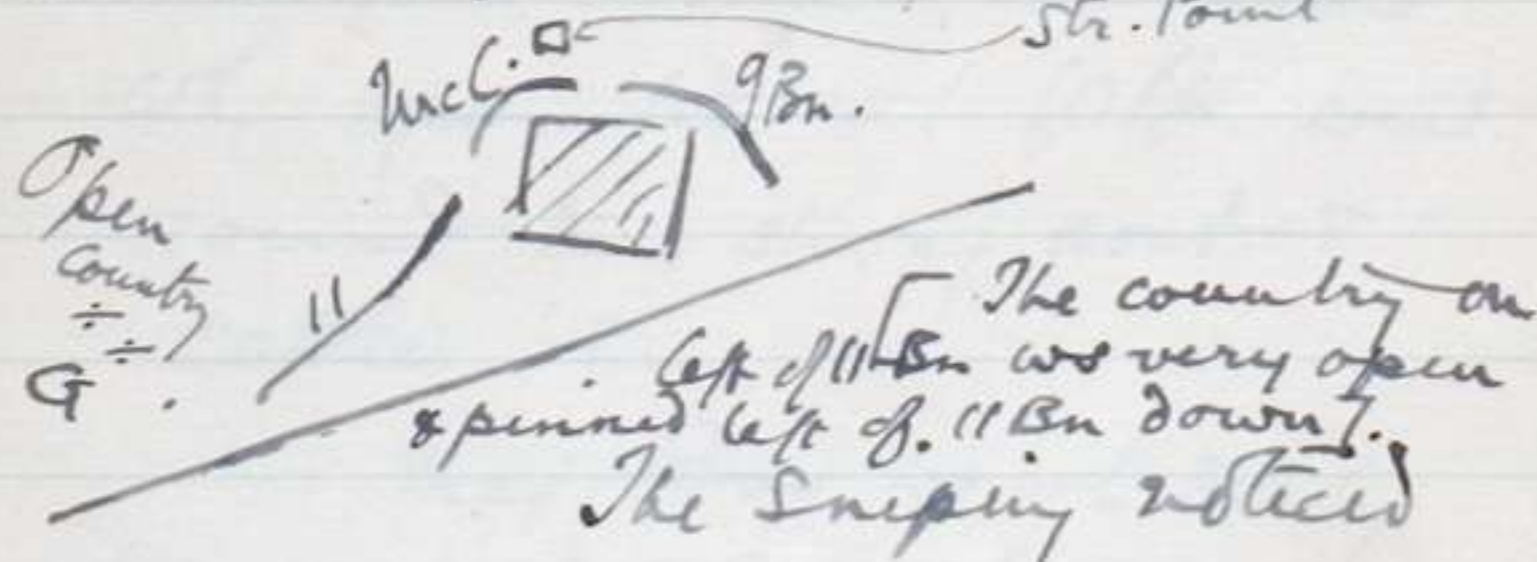 Str. Point
McC.
9 Bn.
Open
Country
G
11
[The country on
left of 11 Bn was very open
& pinned left of 11 Bn down].
The sniping noticed